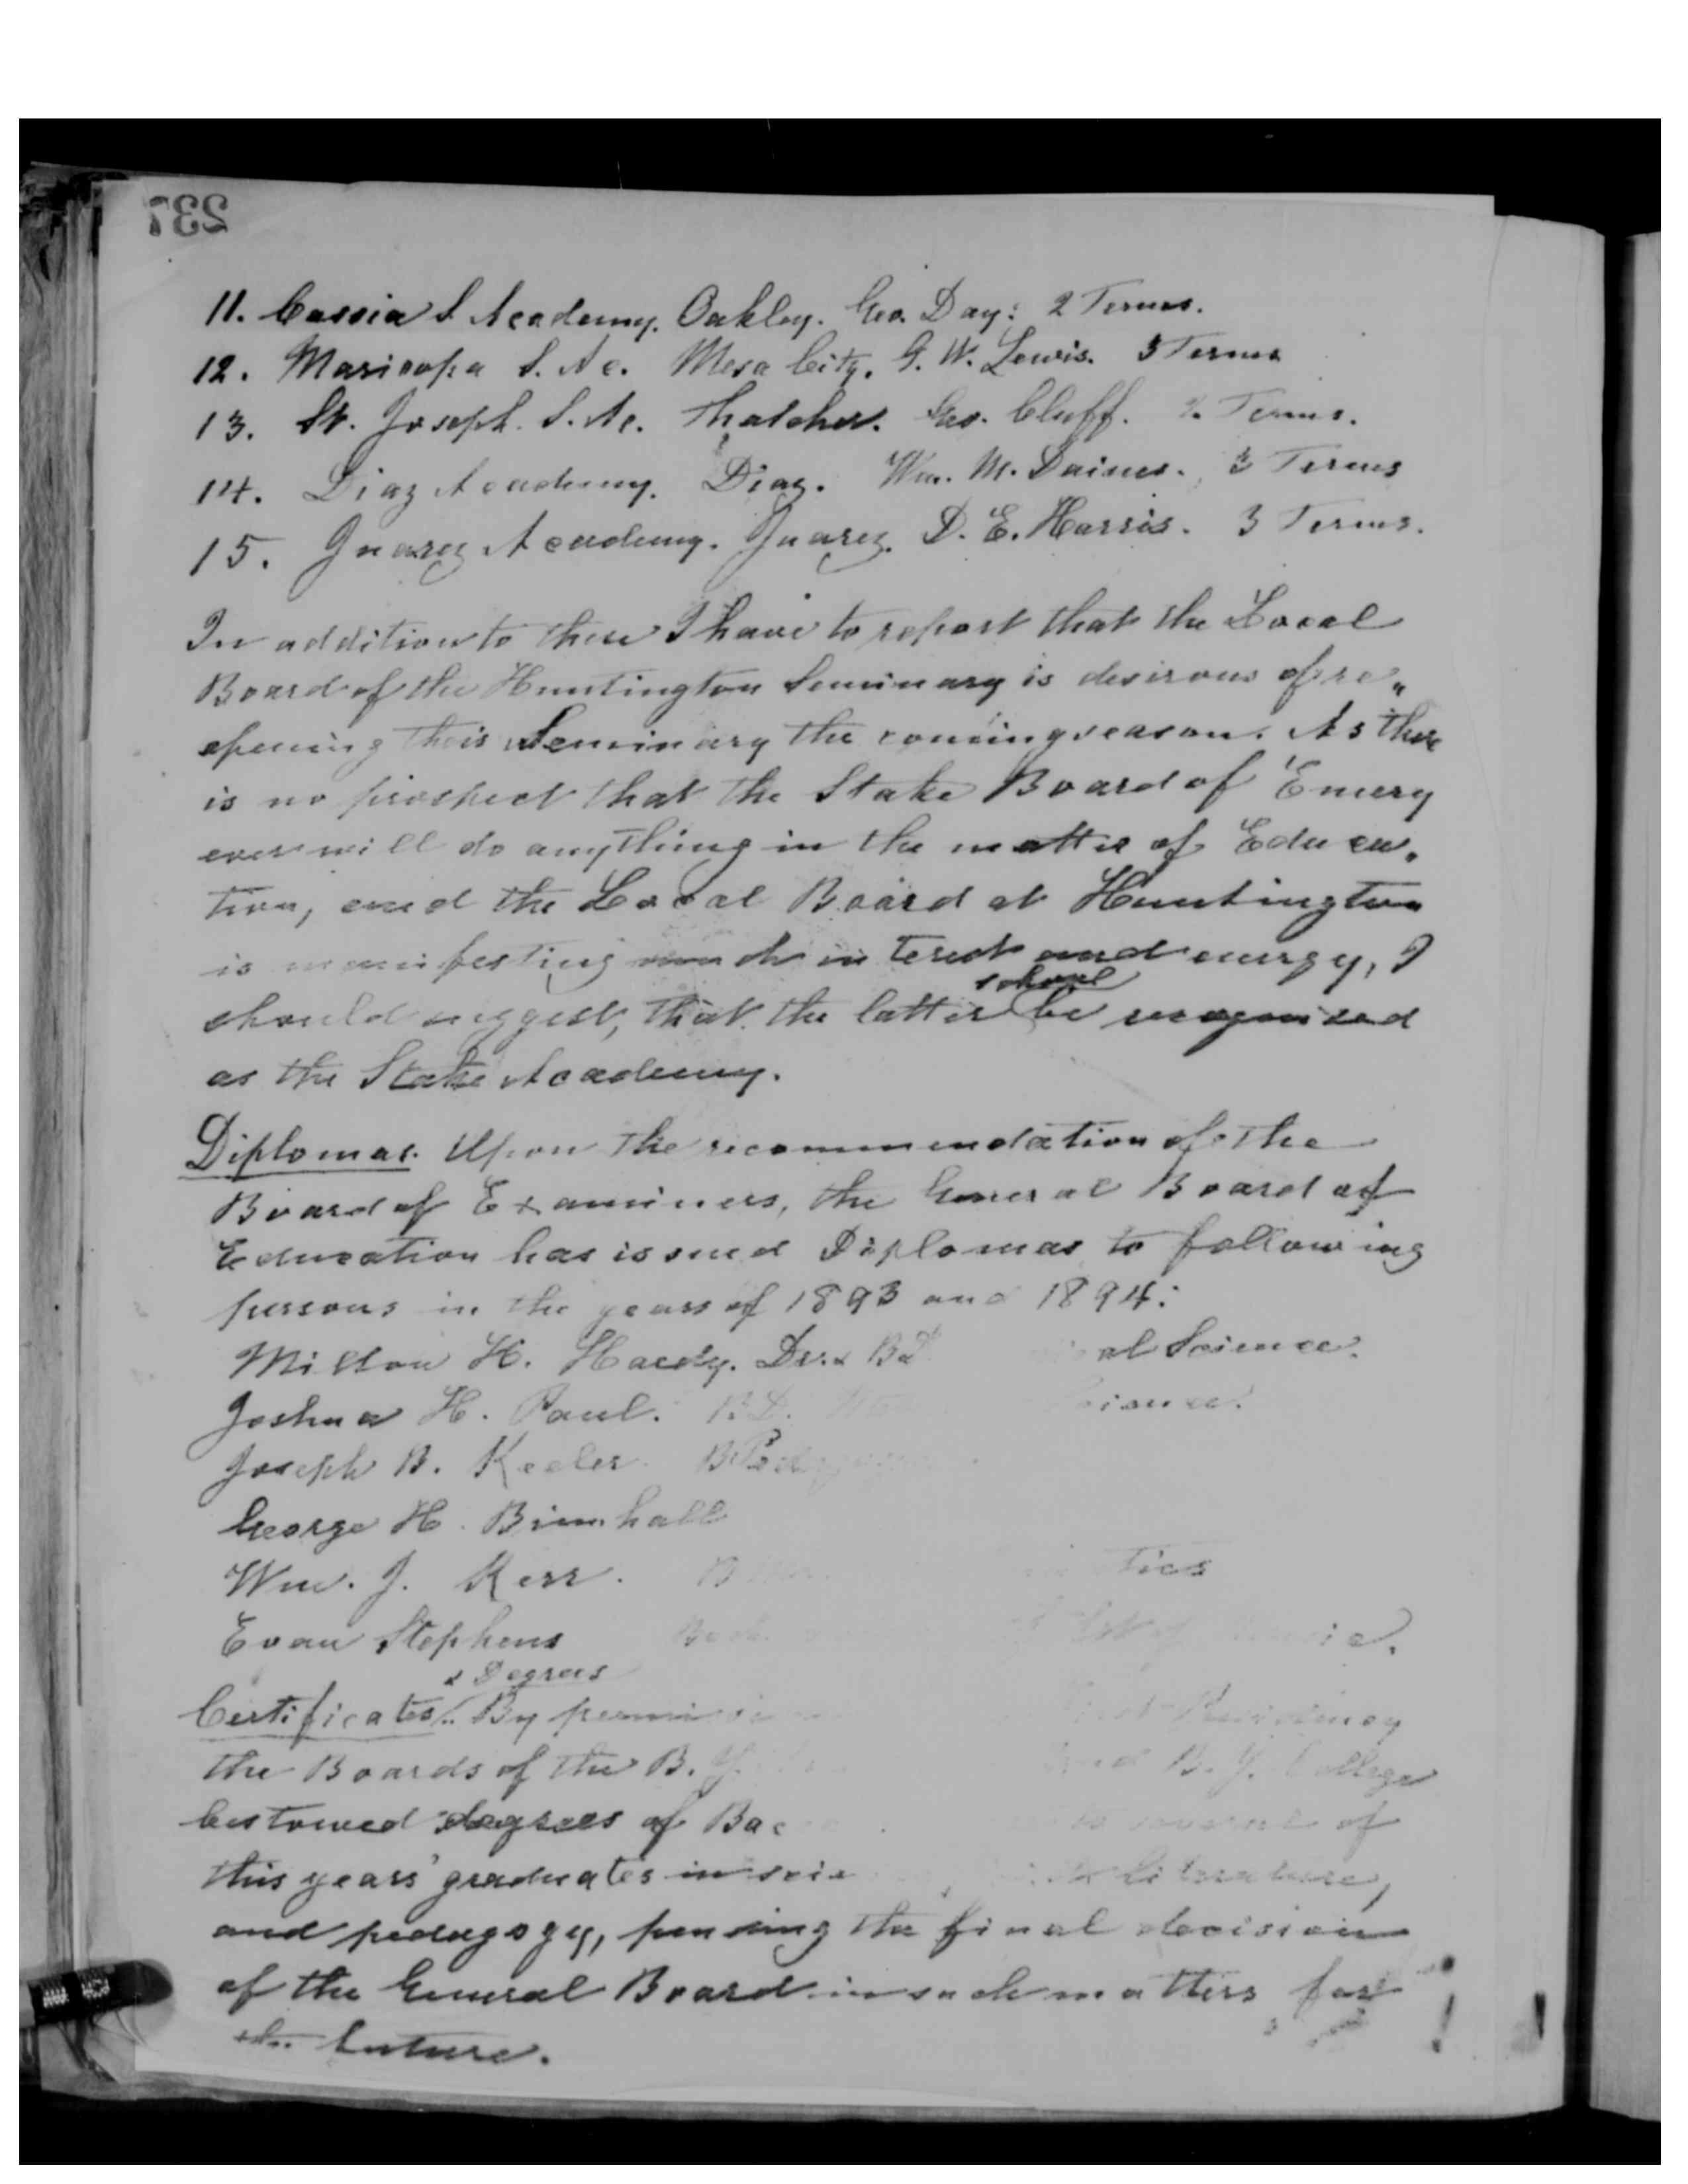 237
11. Cassia S Academy. Oakley. Geo. Day: 2 Terms.
12. Maricopa S. Ac. Mesa City. G. W. Lewis. 3 Terms
13. St. Joseph. S. Ac. Thatcher. Geo. Cluff. 2 Terms.
14. Diaz Academy. Diaz. Wm. M. Daines. 3 Terms
15. Juarez Academy. Juarez. D. E. Harris. 3 Terms.
In addition to these I have to report that the Local
Board of the Huntington Seminary is desirous of re"
opening this Seminary the coming season. As there
is no prospect that the Stake Board of Emery
ever will do anything in the matter of Educa"
tion, and the Local Board at Huntington
is manifesting much interest and energy, I
school
should suggest, that the latter be recognized
as the Stake Academy.
Diplomas. Upon the recommendation of the
Board of Examiners, the General Board of
Education has issued Diplomas to following
persons in the years of 1893 and 1894:
Milton H. Hardy. Dr. & B.D al Science.
Joshua H. Paul. B.D.
Joseph B. Keeler. B.Ped
George H. Brimhall
Wm. J. Kerr. B tics
Evan Stephens
& Degrees
Certificates. By Presidency
the Boards of the B. Y. and B. Y. College
bestowed degrees of Bac to several of
this years' graduates in literature,
and pedagogy, pending the final decision
of the General Board in such matters for
the future.